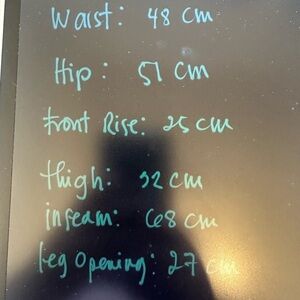 Waist: 48 cm
Hip: 51 cm
Front Rise: 25 cm
Thigh: 32 cm
inseam: 68 cm
Leg Opening: 27 cm